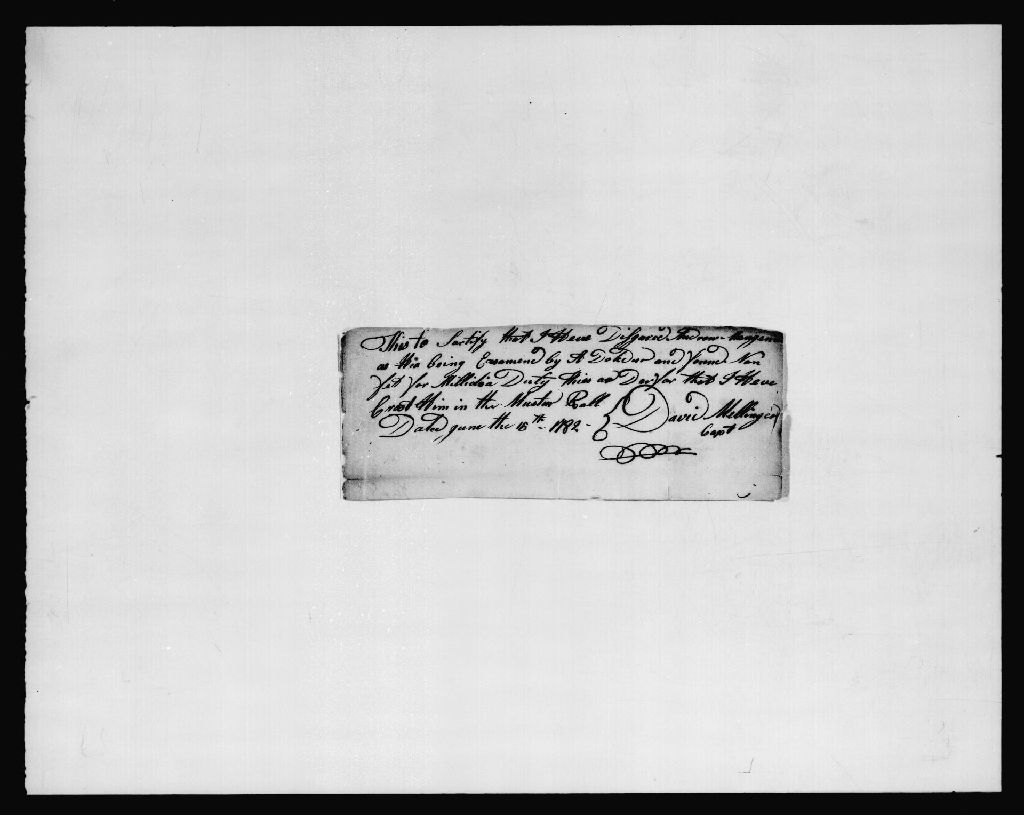 This to Sertify that I Have Dissarved Andrew
as His being Exemened by A Docter and found Non
fit for Millitia Duty this as Du for that I Have
Crost Him in the Muster Roll
Dated June the 15th 1782 - David Mellinger
Capt